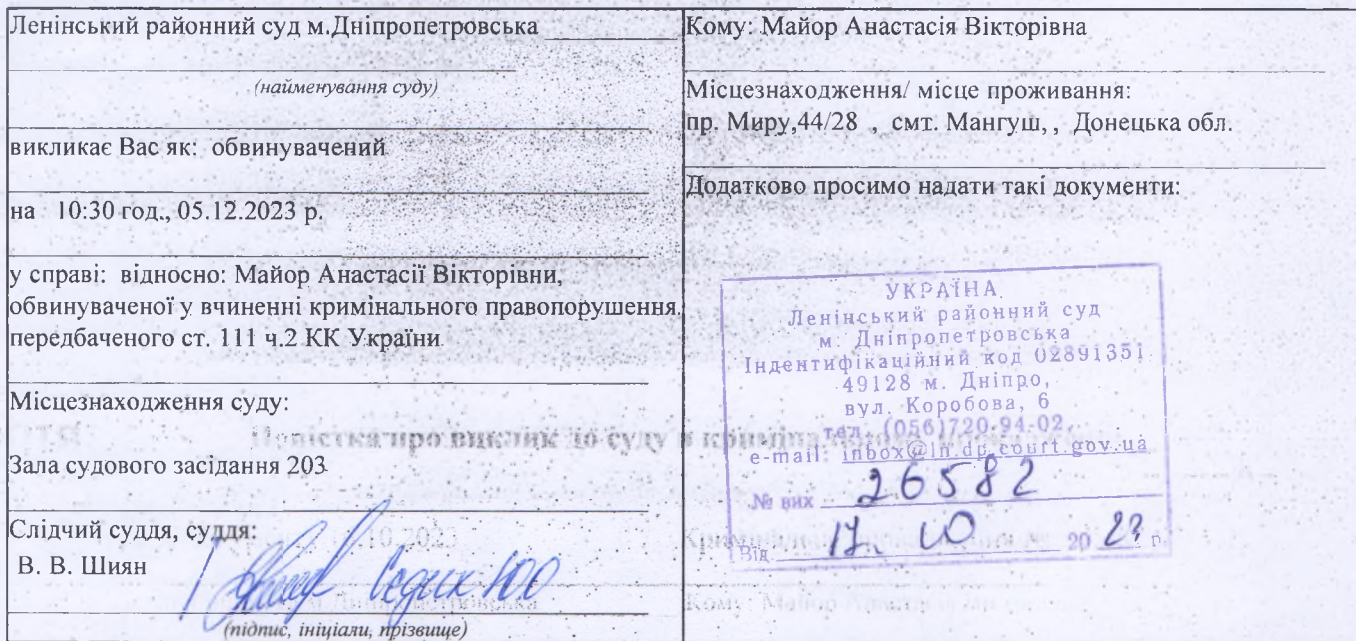 Ленінський районний суд м.Дніпропетровська
(найменування суду)
викликає Вас як: обвинувачений
на 10:30 год., 05.12.2023 р.
у справі: відносно: Майор Анастасії Вікторівни,
обвинуваченої у вчиненні кримінального правопорушення,
передбаченого ст. 111 ч.2 КК України
Місцезнаходження суду:
Зала судового засідання 203
Слідчий суддя, суддя:
В. В. Шиян
(підпис, ініціали, прізвище)
Кому: Майор Анастасія Вікторівна
Місцезнаходження/ місце проживання:
пр. Миру,44/28 , смт. Мангуш, , Донецька обл.
Додатково просимо надати такі документи:
УКРАЇНА
Ленінський районний суд
м. Дніпропетровська
Індентифікаційний код 02891351
49128 м. Дніпро,
вул. Коробова, 6
тел. (056)720-94-02,
e-mail: inbox@ln.dp.court.gov.ua
№ вих 26582
Від 17. 10 20 23 р.